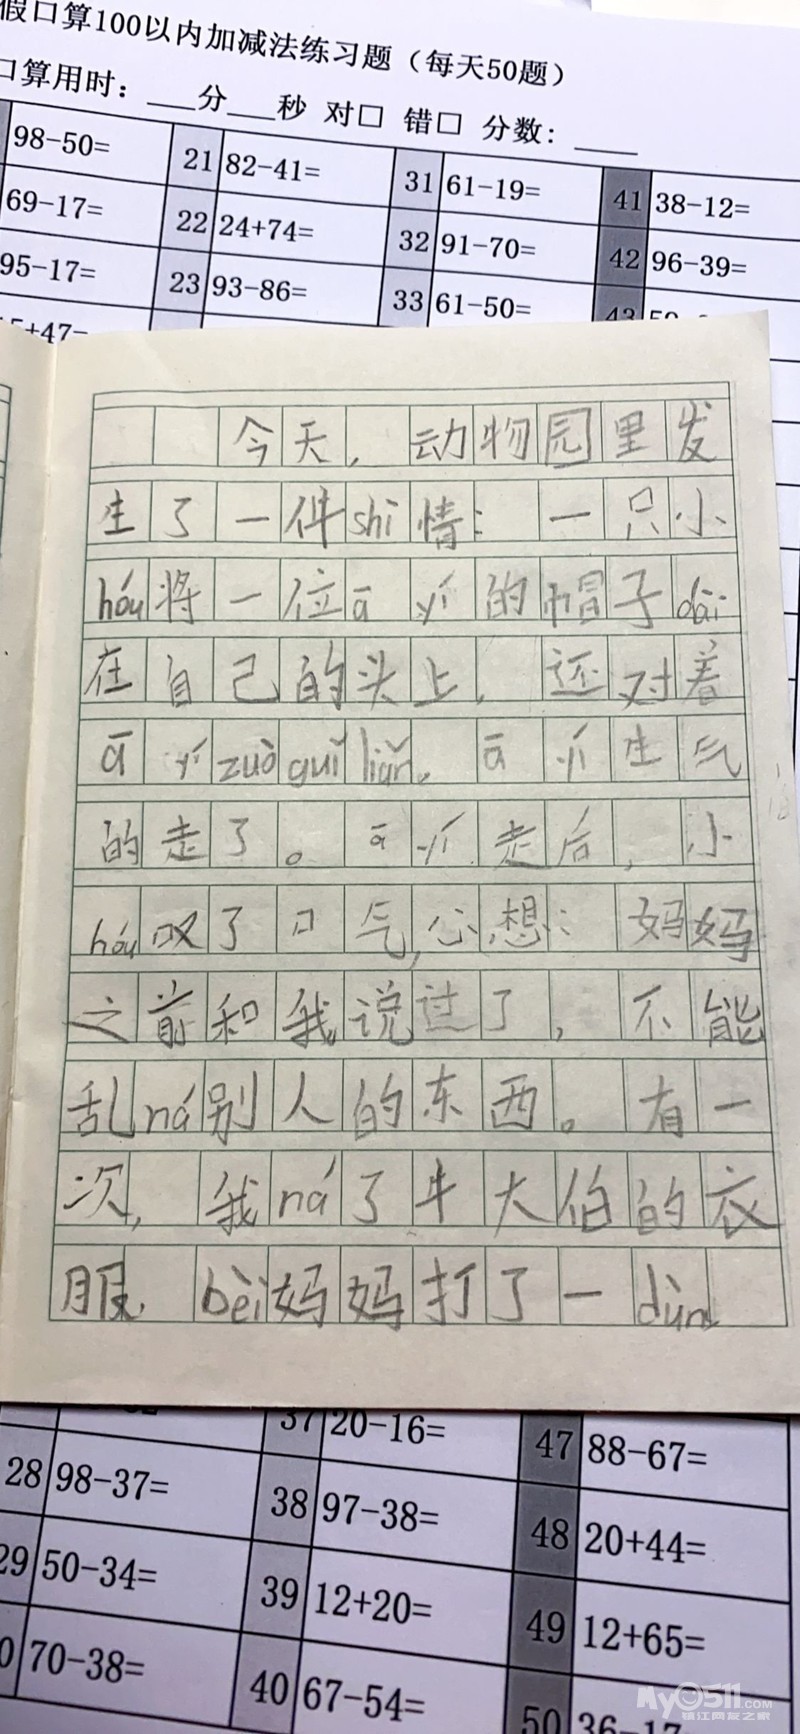 假口算100以内加减法练习题（每天50题）
口算用时：___分___秒 对口 错口 分数：____
98-50= 21 82-41= 31 61-19= 41 38-12=
69-17= 22 24+74= 32 91-70= 42 96-39=
95-17= 23 93-86= 33 61-50= 43
5+47=
今天，动物园里发
生了一件shì情：一只小
hóu将一位ā yí的帽子dài
在自己的头上，还对着
ā yí zuò guǐ liǎn。ā yí生气
的走了。ā yí走后，小
hóu叹了口气，心想：妈妈
之前和我说过了，不能
乱ná别人的东西。有一
次，我ná了牛大伯的衣
服，bèi妈妈打了一dùn
37 20-16= 47 88-67=
28 98-37= 38 97-38= 48 20+44=
29 50-34= 39 12+20= 49 12+65=
0 70-38= 40 67-54= 50 36-17
My0511.com
镇江网友之家